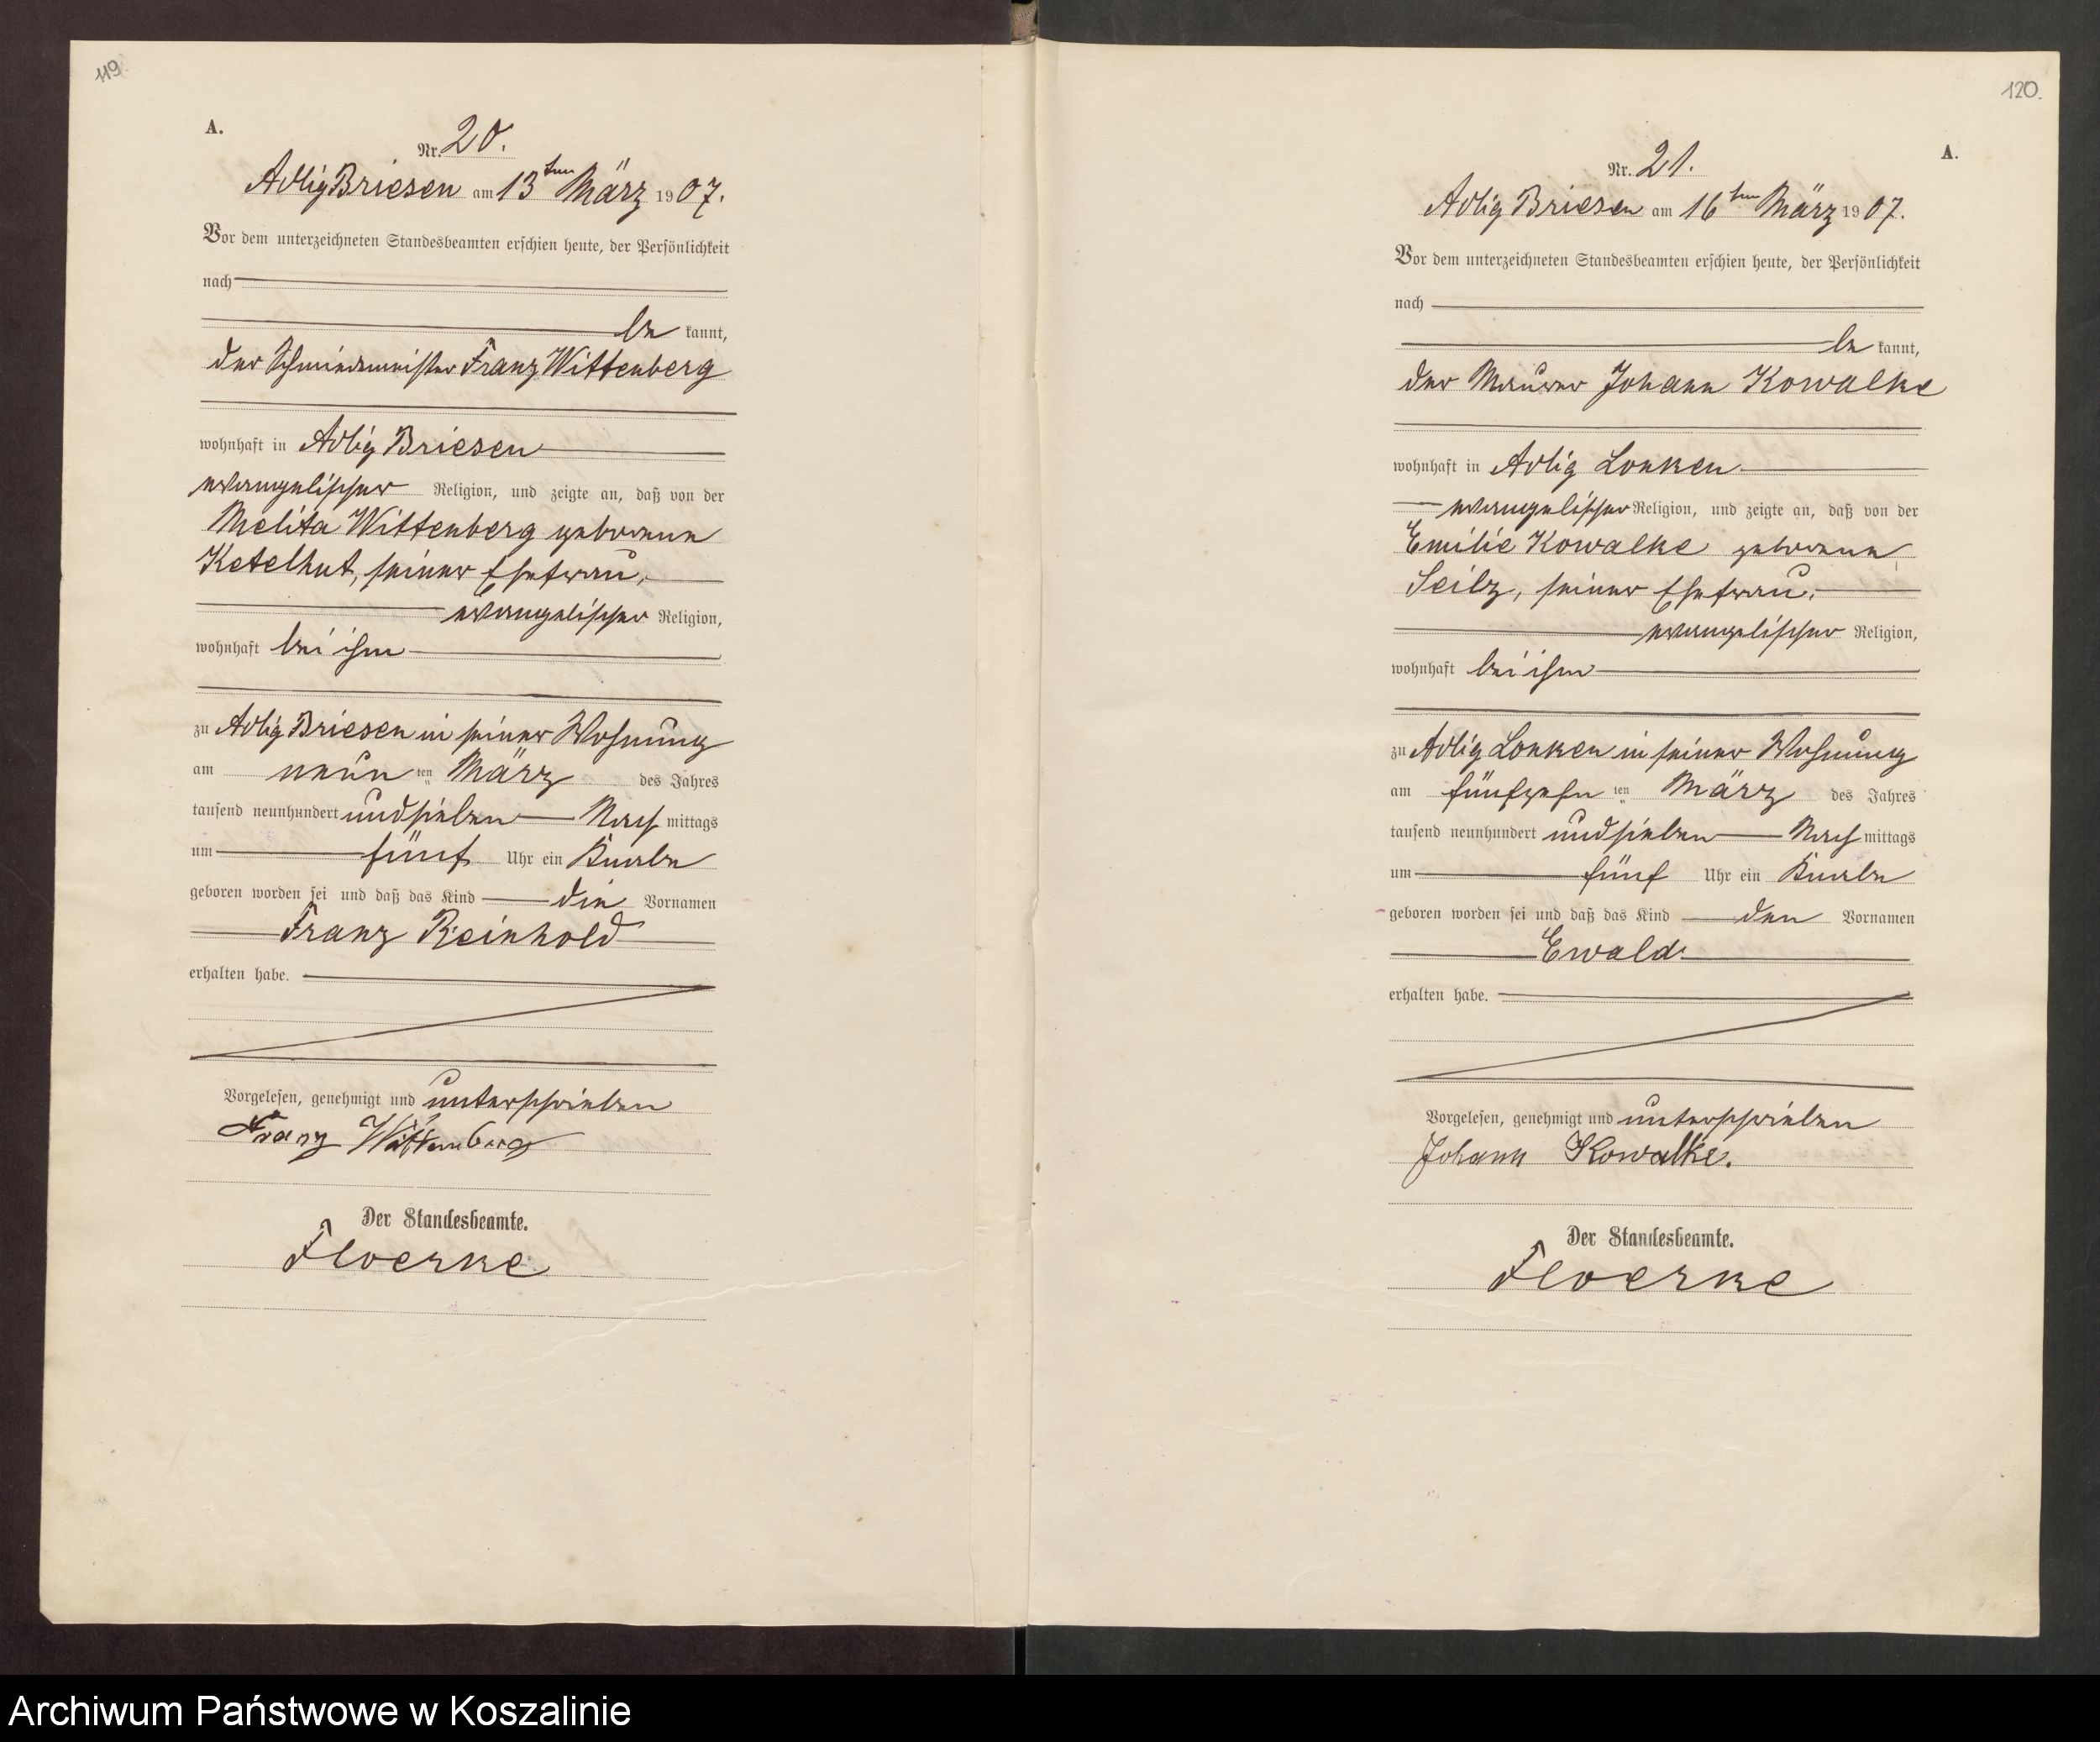 119.
A.
Nr. 20.
Adlig Briesen am 13ten März 1907.
Vor dem unterzeichneten Standesbeamten erschien heute, der Persönlichkeit
nach
be kannt,
der Schmiedemeister Franz Wittenberg
wohnhaft in Adlig Briesen
evangelischer Religion, und zeigte an, daß von der
Melita Wittenberg geborene
Ketelhut, seiner Ehefrau,
evangelischer Religion,
wohnhaft bei ihm
zu Adlig Briesen in seiner Wohnung
am neun ten März des Jahres
tausend neunhundert und sieben Nach mittags
um fünf Uhr ein Knabe
geboren worden sei und daß das Kind die Vornamen
Franz Reinhold
erhalten habe.
Vorgelesen, genehmigt und unterschrieben
Franz Wittenberg
Der Standesbeamte.
Floerke
120.
A.
Nr. 21.
Adlig Briesen am 16ten März 1907.
Vor dem unterzeichneten Standesbeamten erschien heute, der Persönlichkeit
nach
be kannt,
der Maurer Johann Kowalke
wohnhaft in Adlig Lonken
evangelischer Religion, und zeigte an, daß von der
Emilie Kowalke geborene
Seilz, seiner Ehefrau,
evangelischer Religion,
wohnhaft bei ihm
zu Adlig Lonken in seiner Wohnung
am fünfzehn ten März des Jahres
tausend neunhundert und sieben Nach mittags
um fünf Uhr ein Knabe
geboren worden sei und daß das Kind den Vornamen
Ewald
erhalten habe.
Vorgelesen, genehmigt und unterschrieben
Johann Kowalke.
Der Standesbeamte.
Floerke
Archiwum Państwowe w Koszalinie